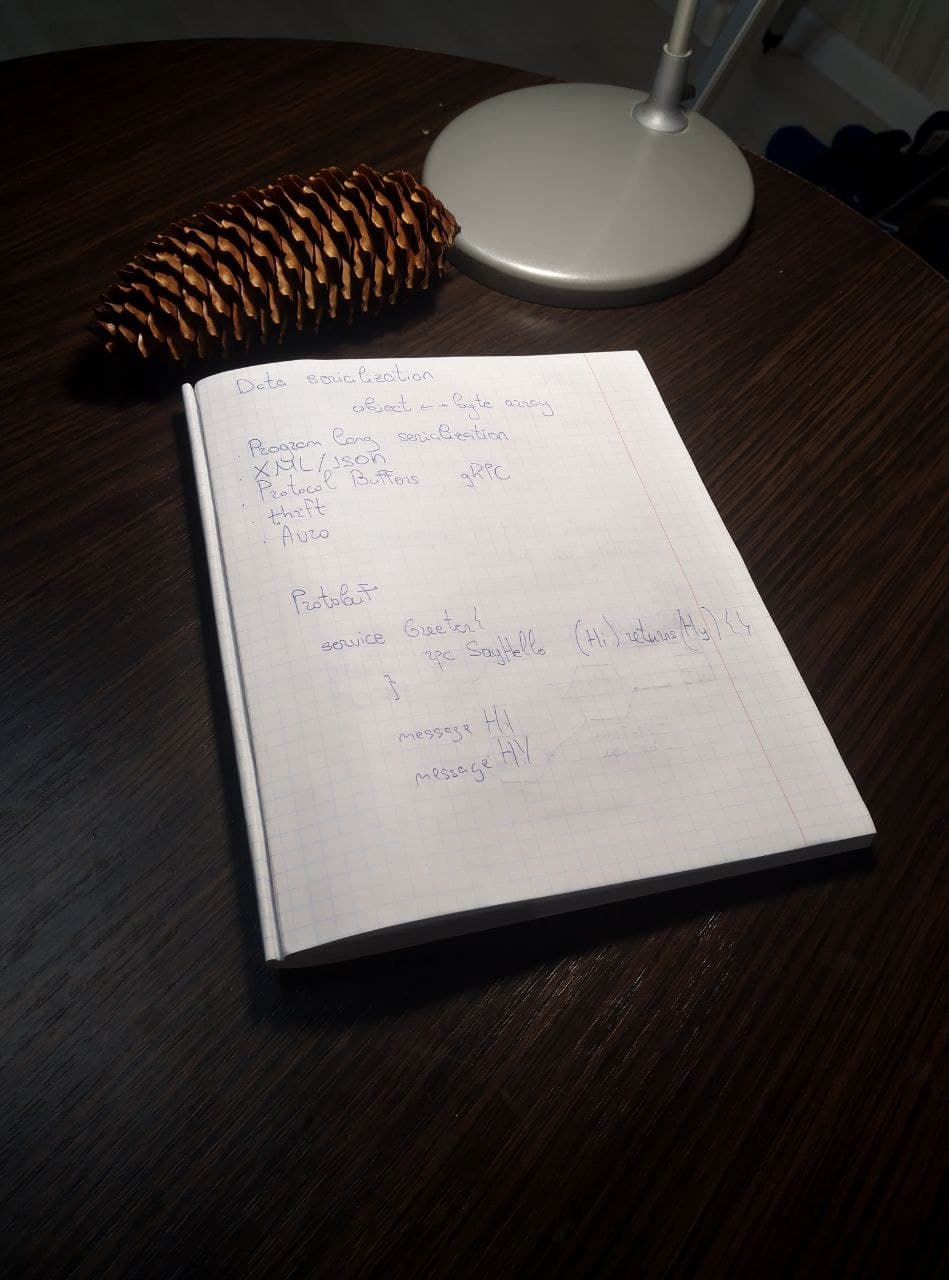 Data serialization
object <-- byte array
· Program lang serialization
· XML/JSON
· Protocol Buffers gRPC
thrift
· Avro
Protobuf
service Greeter{
rpc SayHello (Hi) returns (Hy) {}
}
message Hi
message HY